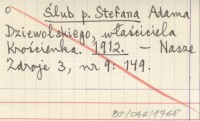 Ślub p. Stefana Adama
Dziewolskiego, właściciela
Krościenka. 1912. — Nasze
Zdroje 3, nr 9: 149.
BJ/096/1968